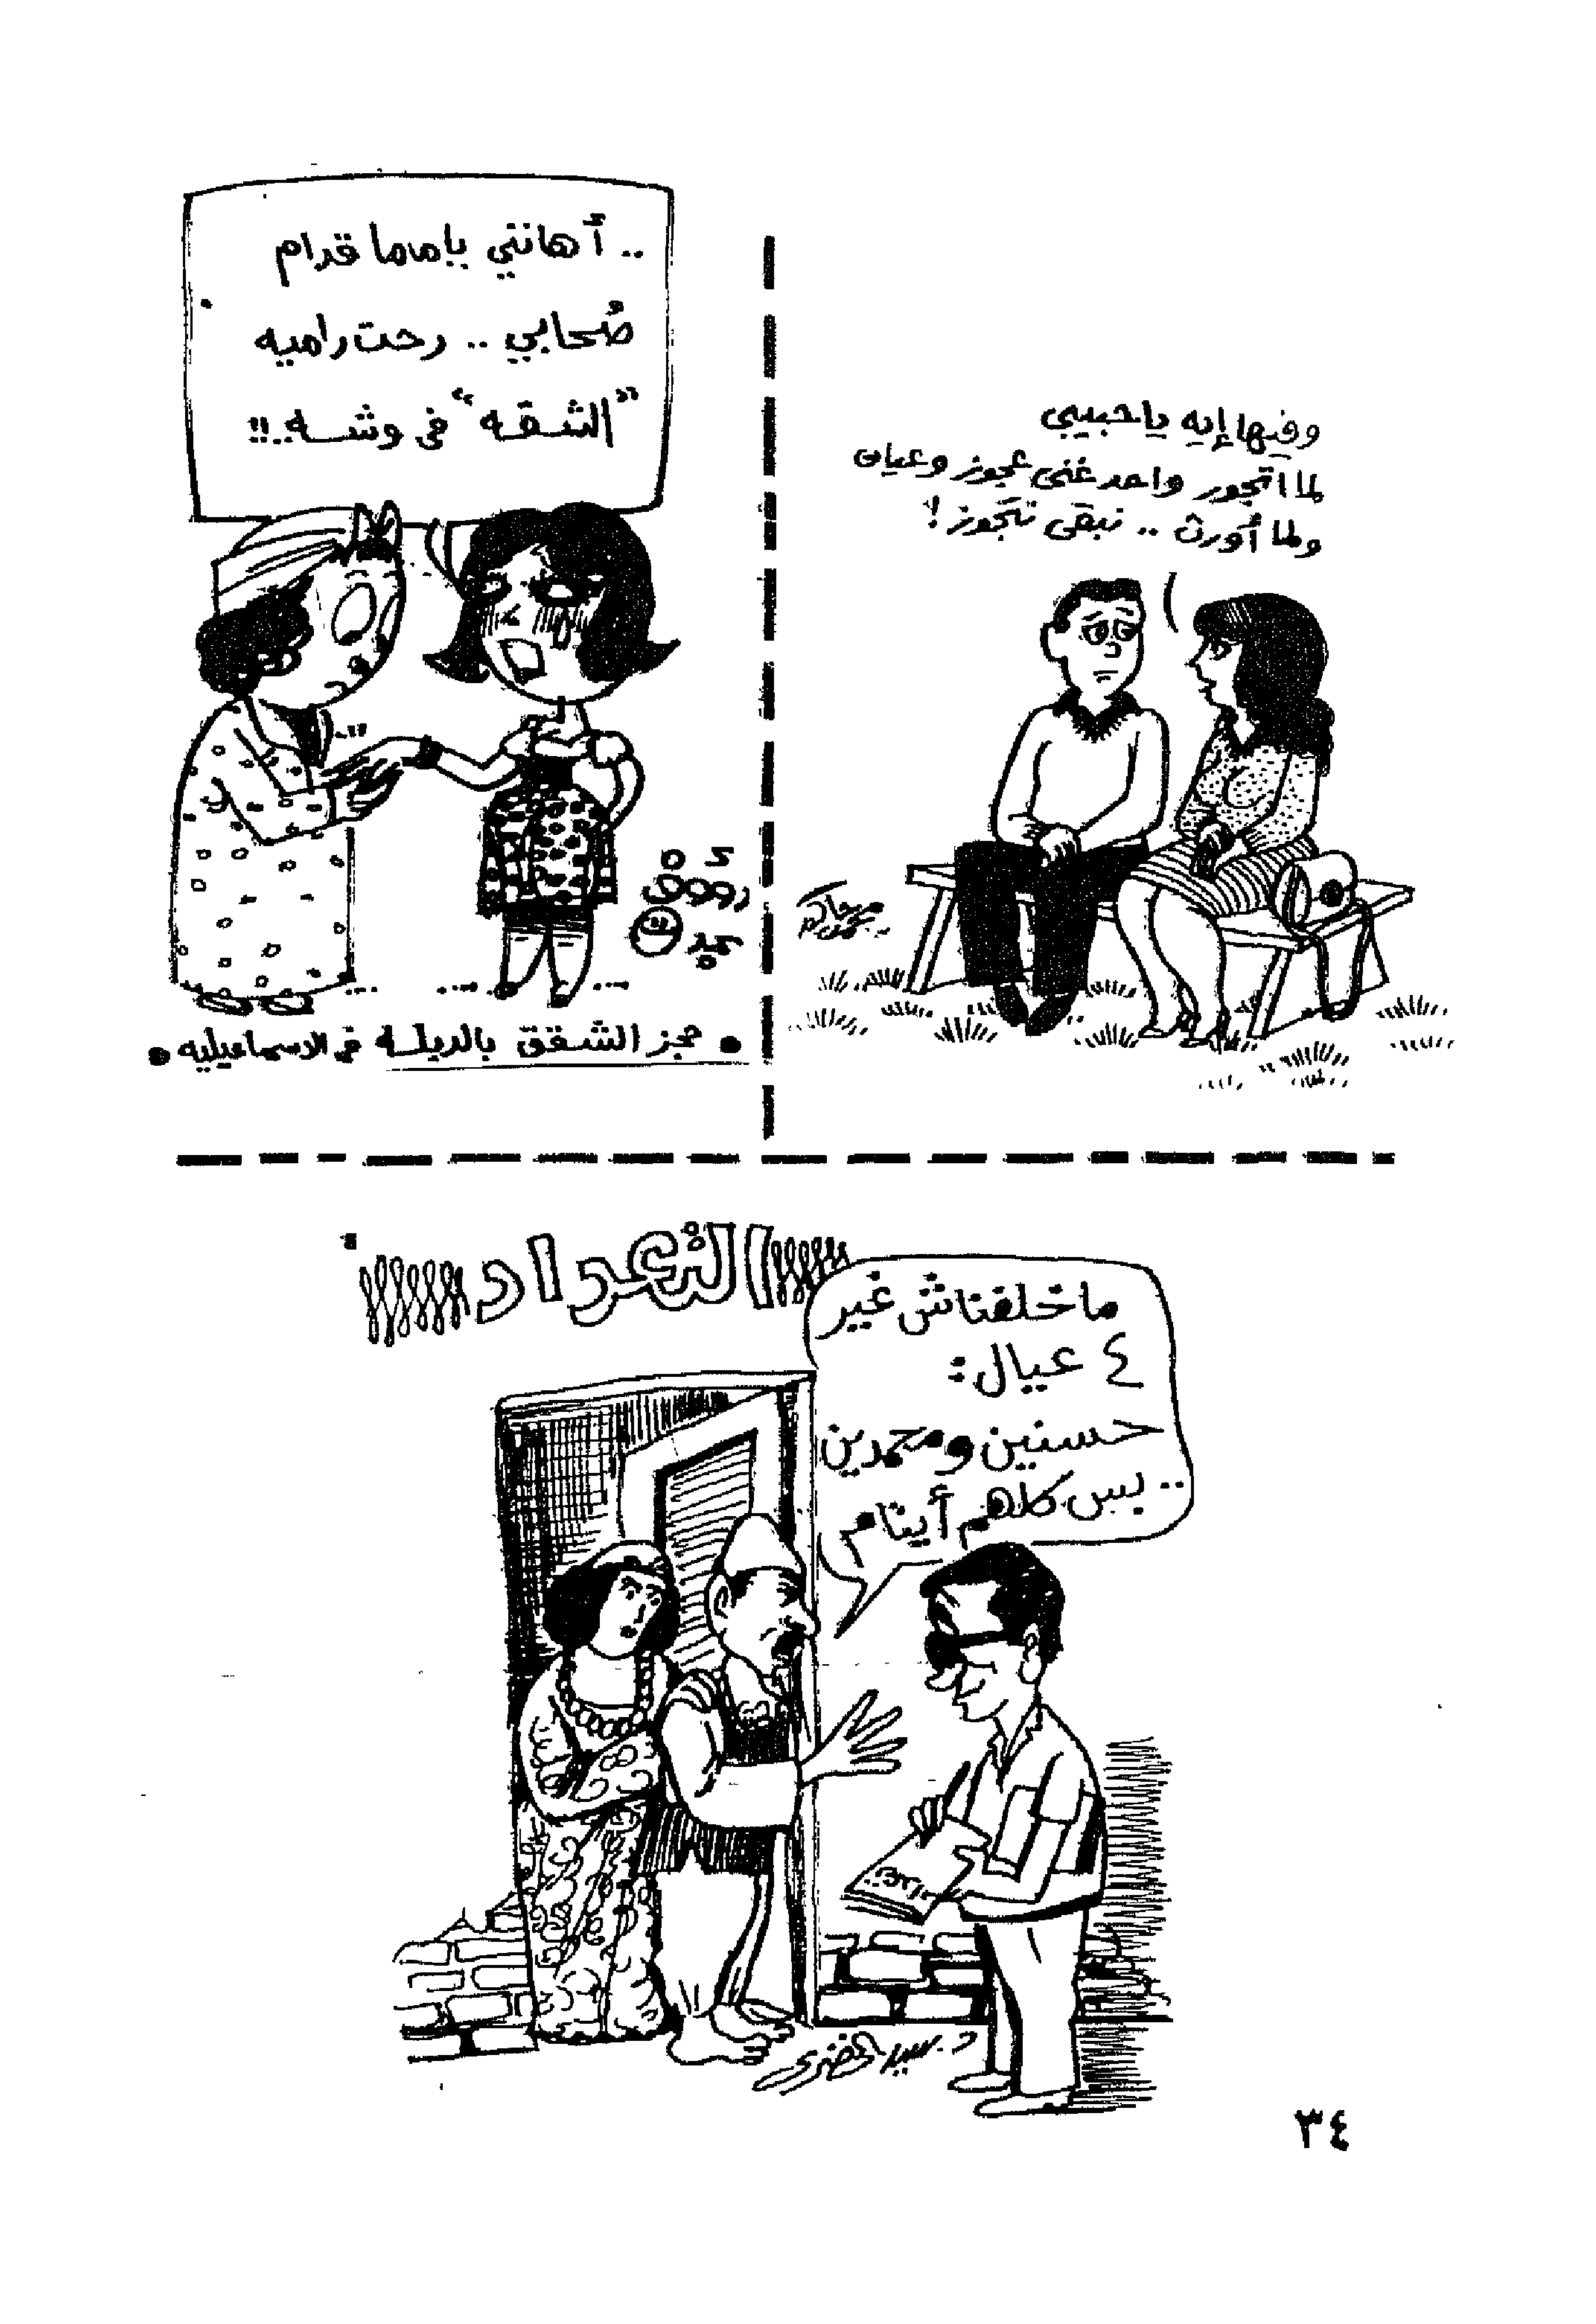 وفيها إيه ياحبيبي
لما اتجوز واحد غني عجوز وعيان
ولما أورث .. نبقى نتجوز !
.. أهانتي ياماما قدام
صُحابي .. رحت راميه
"الشقه" في وشه..!!
رءوف
عبده
• حجز الشقق بالدبلة في الاسماعيليه •
التعداد
ماخلفناش غير
٤ عيال :
حسنين ومحمدين
.. بس كلهم أيتام
تعداد
د. سيد خضرى
٣٤